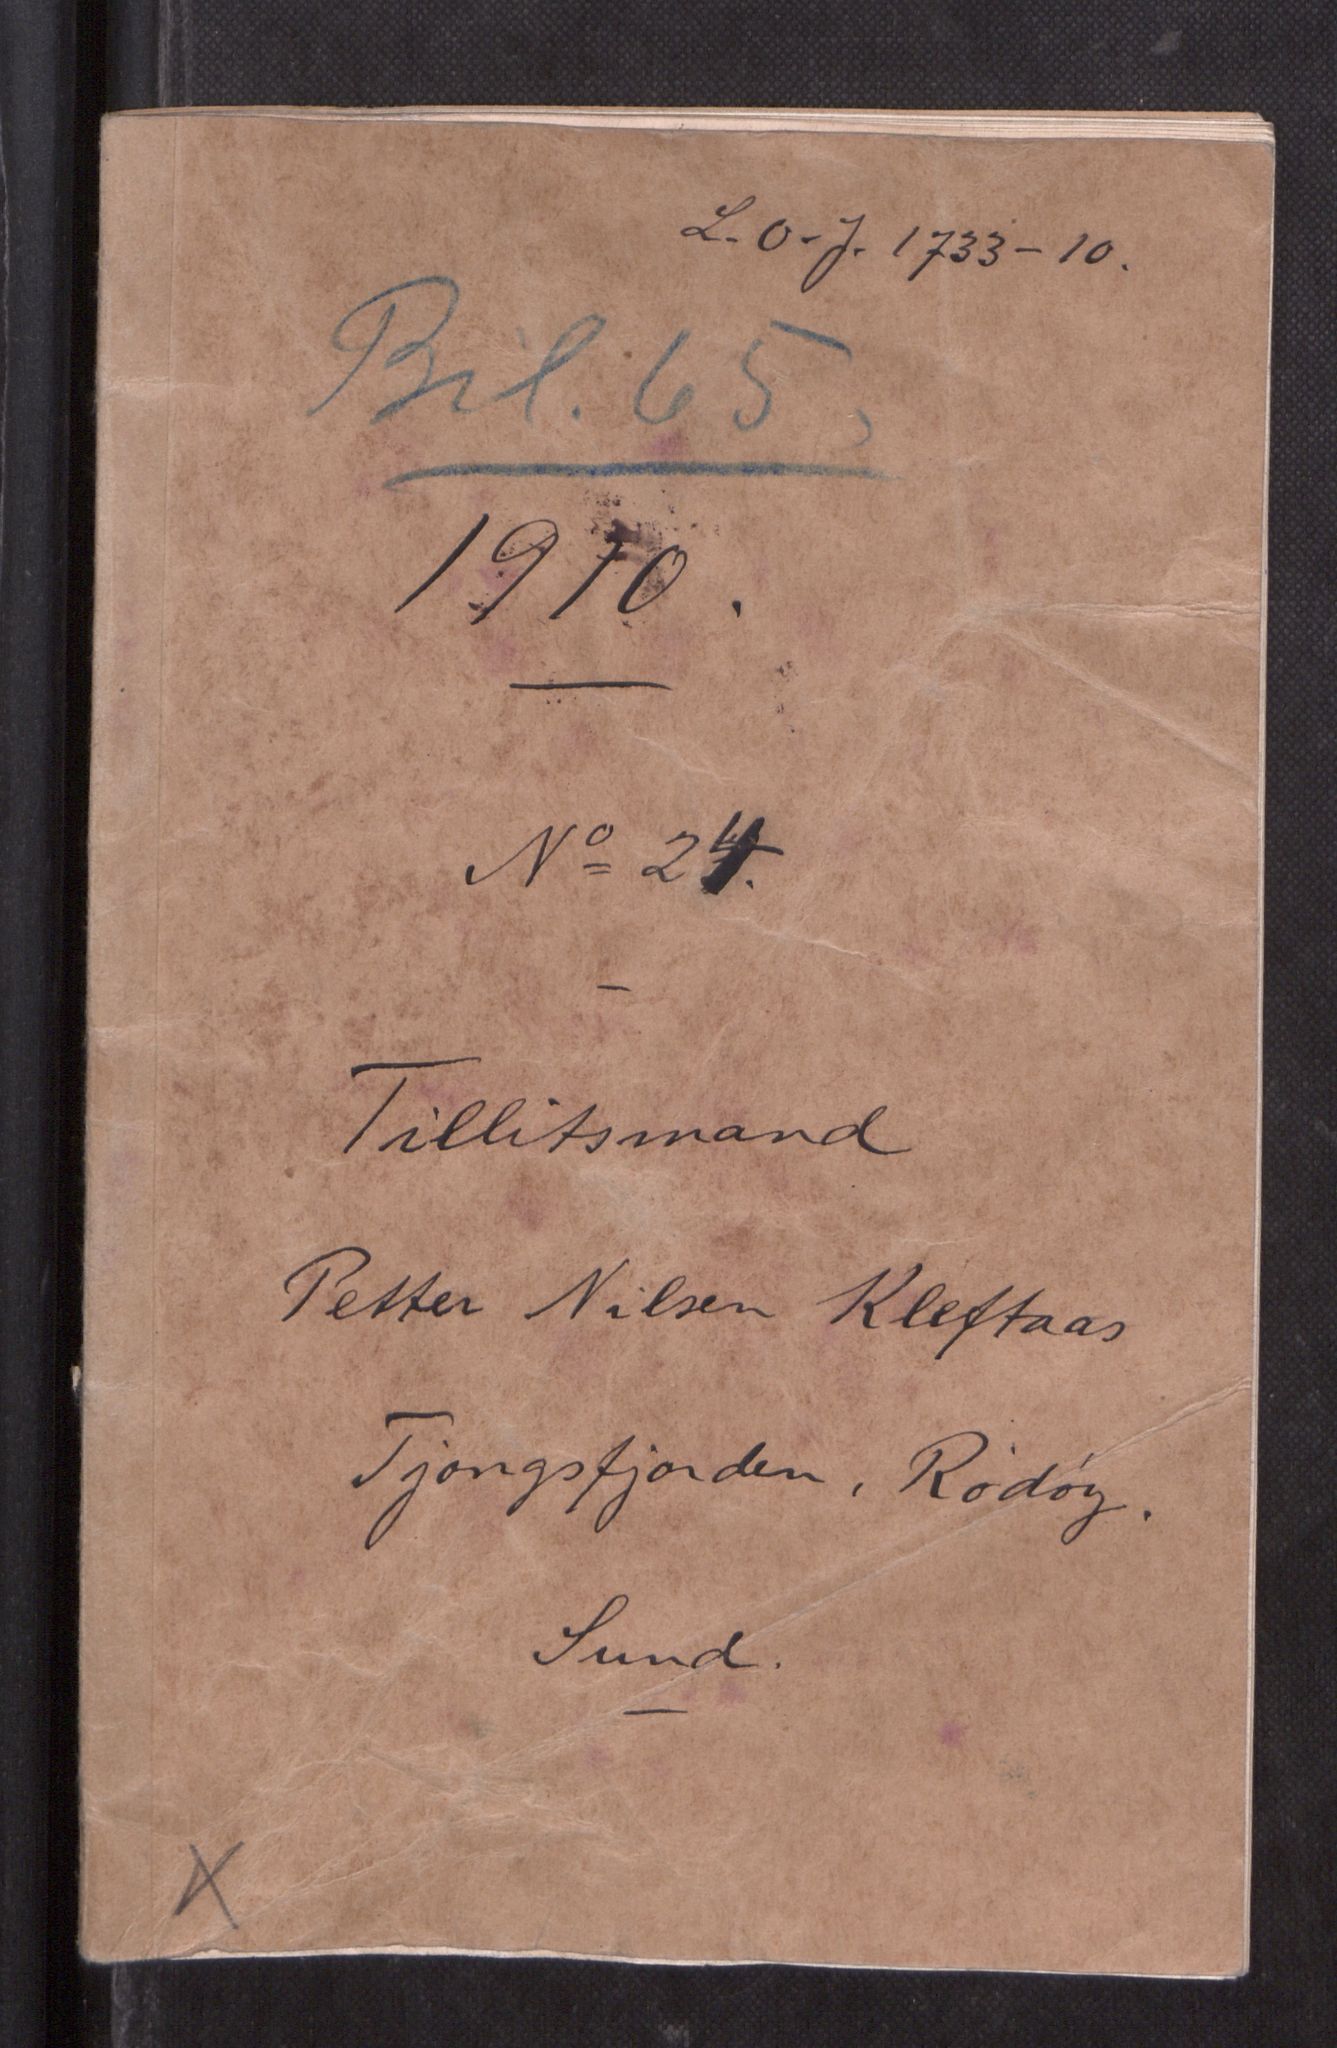 L. O. J. 1733-10.
Bil. 65.
1910.
No 24.
Tillitsmand
Petter Nilsen Kleftaas
Tjongsfjorden, Rødøy.
Sund.
X